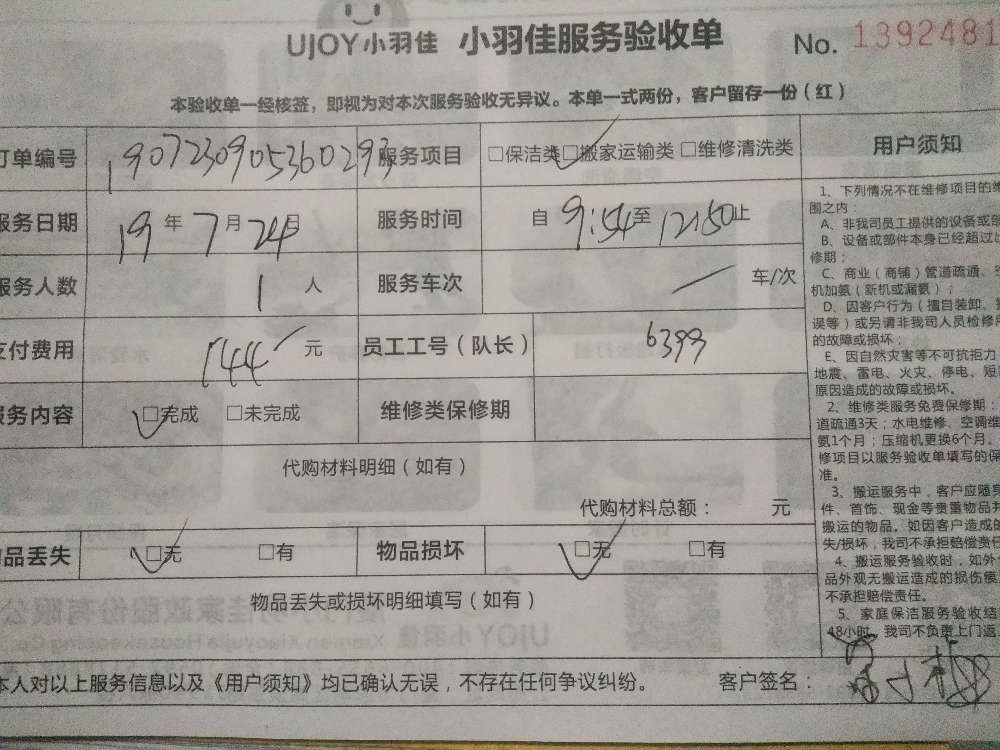 UJOY小羽佳 小羽佳服务验收单 No. 1392481
本验收单一经核签，即视为对本次服务验收无异议。本单一式两份，客户留存一份（红）
订单编号 190723090536029 服务项目 □保洁类 □搬家运输类 □维修清洗类
服务日期 19年7月24日 服务时间 自9:54至12:50止
服务人数 1人 服务车次 车/次
支付费用 144元 员工工号（队长） 6399
服务内容 □完成 □未完成 维修类保修期
代购材料明细（如有）
代购材料总额： 元
物品丢失 □无 □有 物品损坏 □无 □有
物品丢失或损坏明细填写（如有）
本人对以上服务信息以及《用户须知》均已确认无误，不存在任何争议纠纷。 客户签名：
用户须知
1、下列情况不在维修项目的维
围之内：
A、非我司员工提供的设备或
B、设备或部件本身已经超过
修期；
C、商业（商铺）管道疏通、
机加氨（新机或漏氨）；
D、因客户行为（擅自装卸、
误等）或另请非我司人员检修
的故障或损坏；
E、因自然灾害等不可抗拒力
地震、雷电、火灾、停电、短
原因造成的故障或损坏。
2、维修类服务免费保修期：
道疏通3天；水电维修、空调维
氨1个月；压缩机更换6个月。
修项目以服务验收单填写的保
准。
3、搬运服务中，客户应随身
件、首饰、现金等贵重物品
搬运的物品。如因客户造成的
失/损坏，我司不承担赔偿责任
4、搬运服务验收时，如外
品外观无搬运造成的损伤痕
不承担赔偿责任。
5、家庭保洁服务验收结
48小时，我司不负责上门返